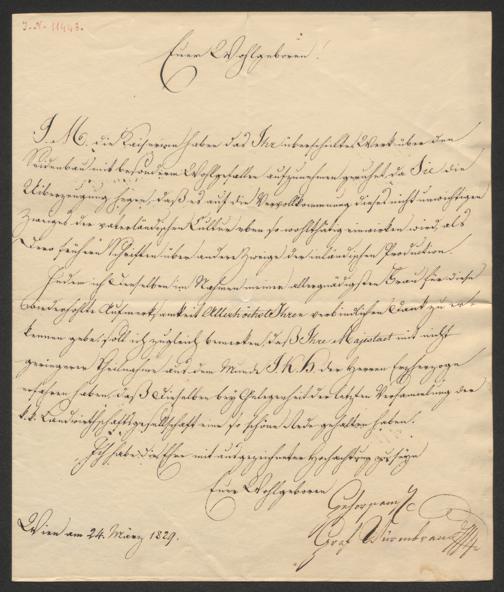 I. N. 11443.
Euer Wohlgeboren!
I. M. die Kaiserinn haben das Ihr überschickte Werk über den
Seidenbau mit besonderem Wohlgefallen aufzunehmen geruhet, da Sie die
Uiberzeugung hegen, daß es auf die Vervollkommnung dieses nicht unwichtigen
Zweiges der vaterländischen Cultur eben so wohlthätig einwirken wird, als
Dero frühere Schriften über andere Zweige der inländischen Production.
Indem ich Denselben im Nahmen meiner allergnädigsten Frau für diese
wiederhohlte Aufmerksamkeit Allerhöchst Ihren verbindlichen Dank zu er-
kennen gebe, soll ich zugleich bemerken, daß Ihre Majestaet mit nicht
geringerer Theilnahme aus dem Munde I. K. H. der Herren Erzherzoge
erfahren haben, daß Dieselben bey Gelegenheit der letzten Versammlung der
k. k. Landwirthschaftsgesellschaft eine so schöne Rede gehalten haben.
Ich habe die Ehre mit ausgezeichneter Hochachtung zu seyn
Euer Wohlgeboren
Gehorsamster
Graf Wurmbrand
Wien am 24. März 1829.